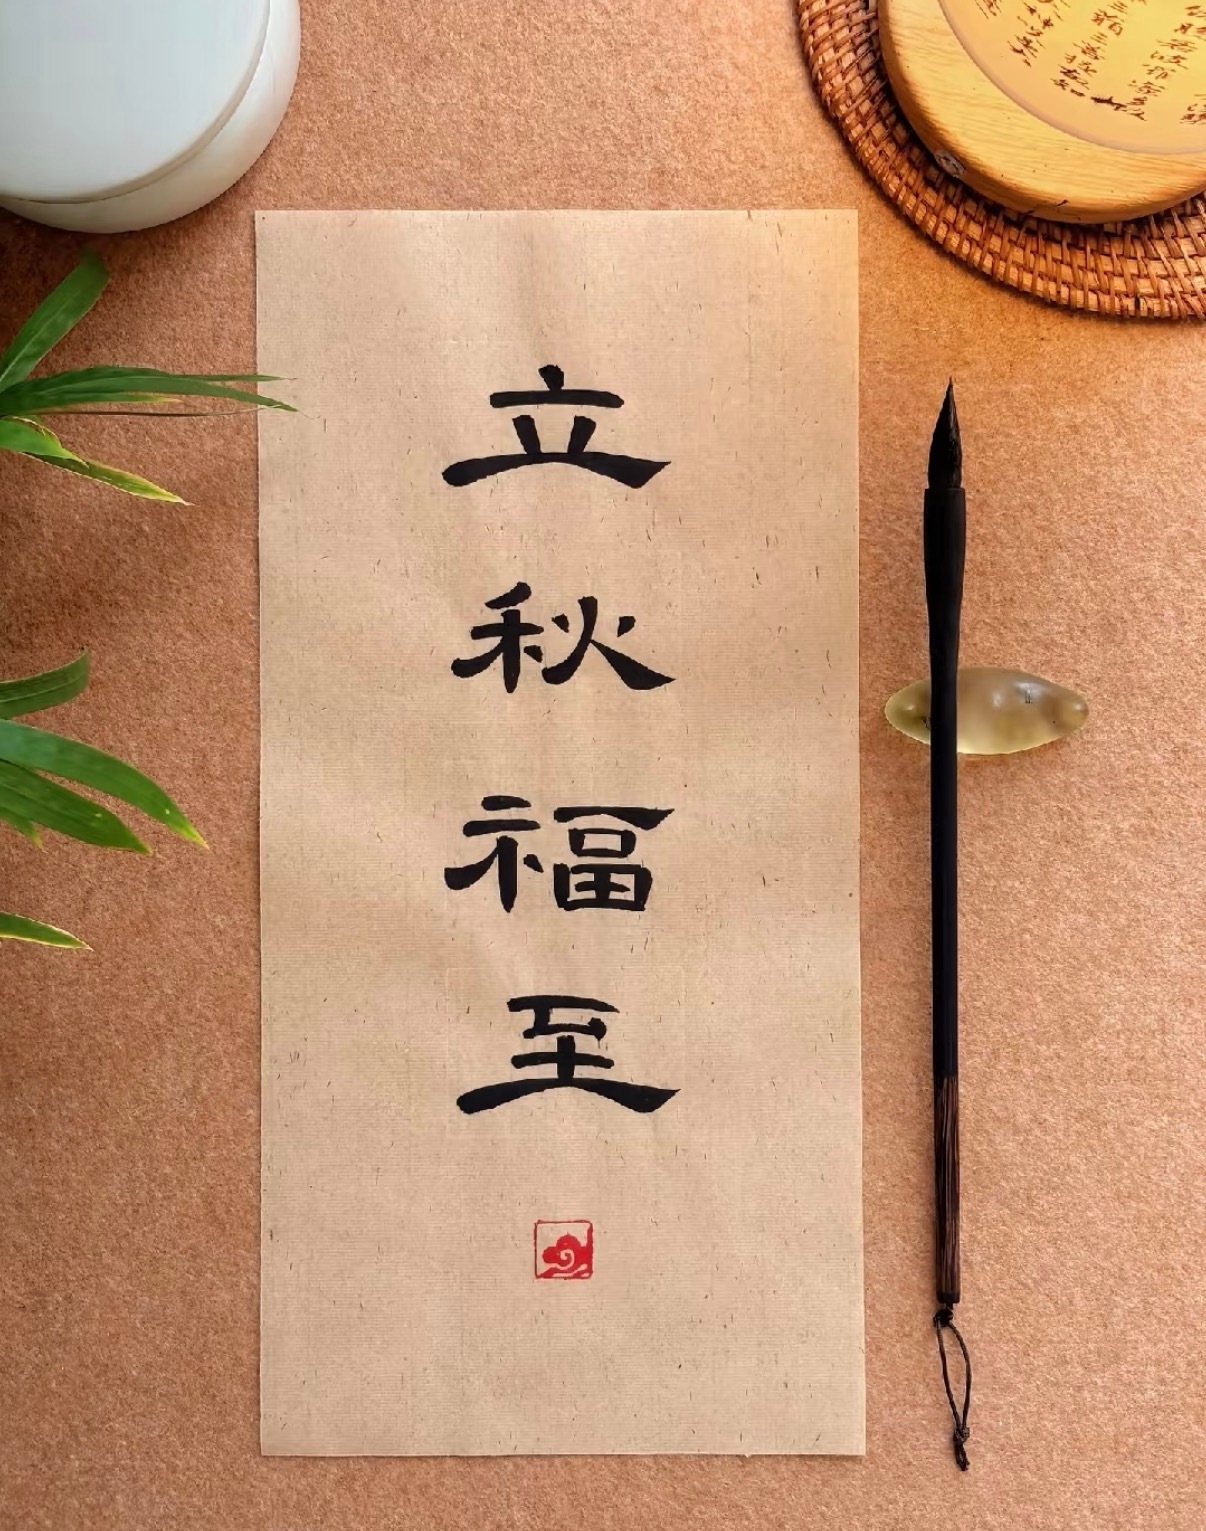 立秋福至